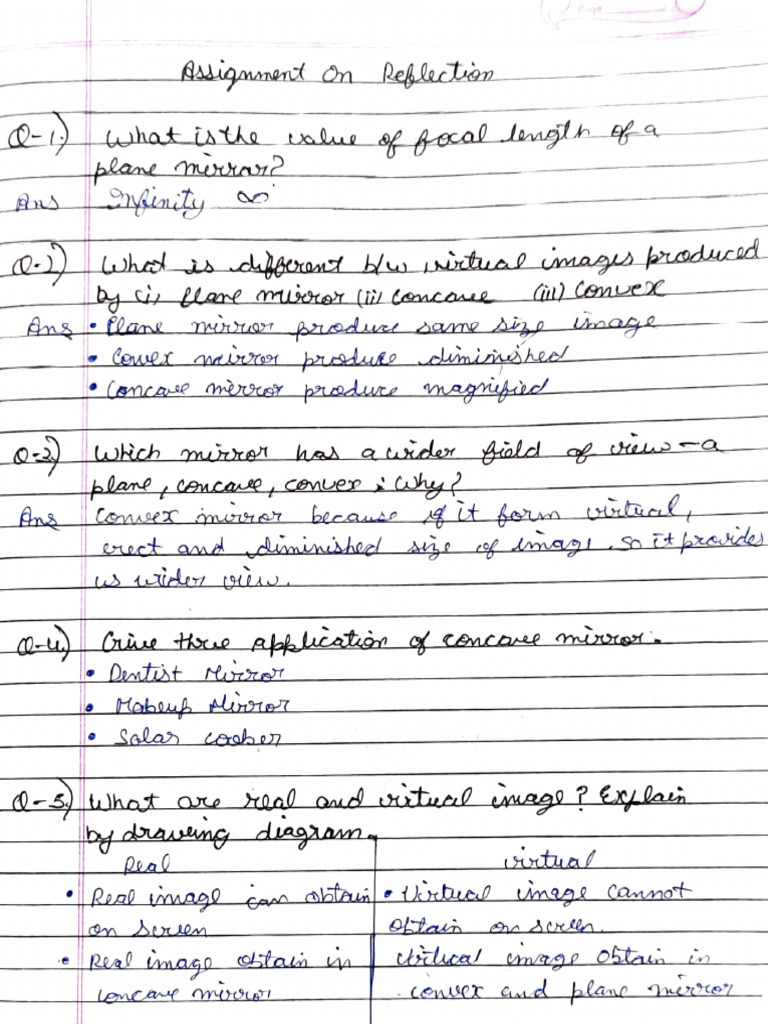 Page
Assignment On Reflection
Q-1.) What is the value of focal length of a
plane mirrar?
Ans Infinity ∞
Q-2) What is different b/w virtual images produced
by (i) plane mirror (ii) concave (iii) convex
Ans • Plane mirror produce same size image
• Covex mirror produce diminished
• Concave mirror produce magnified
Q-3) Which mirror has a wider field of view - a
plane, concave, convex ; Why?
Ans Convex mirror because if it form virtual,
erect and diminished size of image. So it provides
us wider view.
Q-4.) Give three application of concave mirror.
• Dentist Mirror
• Makeup Mirror
• Solar cooker
Q-5.) What are real and virtual image? Explain
by draweing diagram.
Real virtual
• Real image can obtain • Virtual image cannot
on screen obtain on screen.
• Real image obtain in image obtain in
concave mirror convex and plane mirror